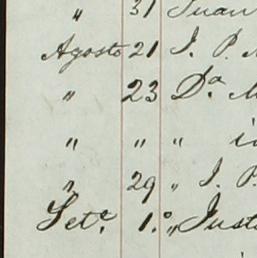 " 31 Juan
Agosto 21 J. P.
" 23 Da.
" " "
" 29 " J. P.
Sete. 1.º " Justo